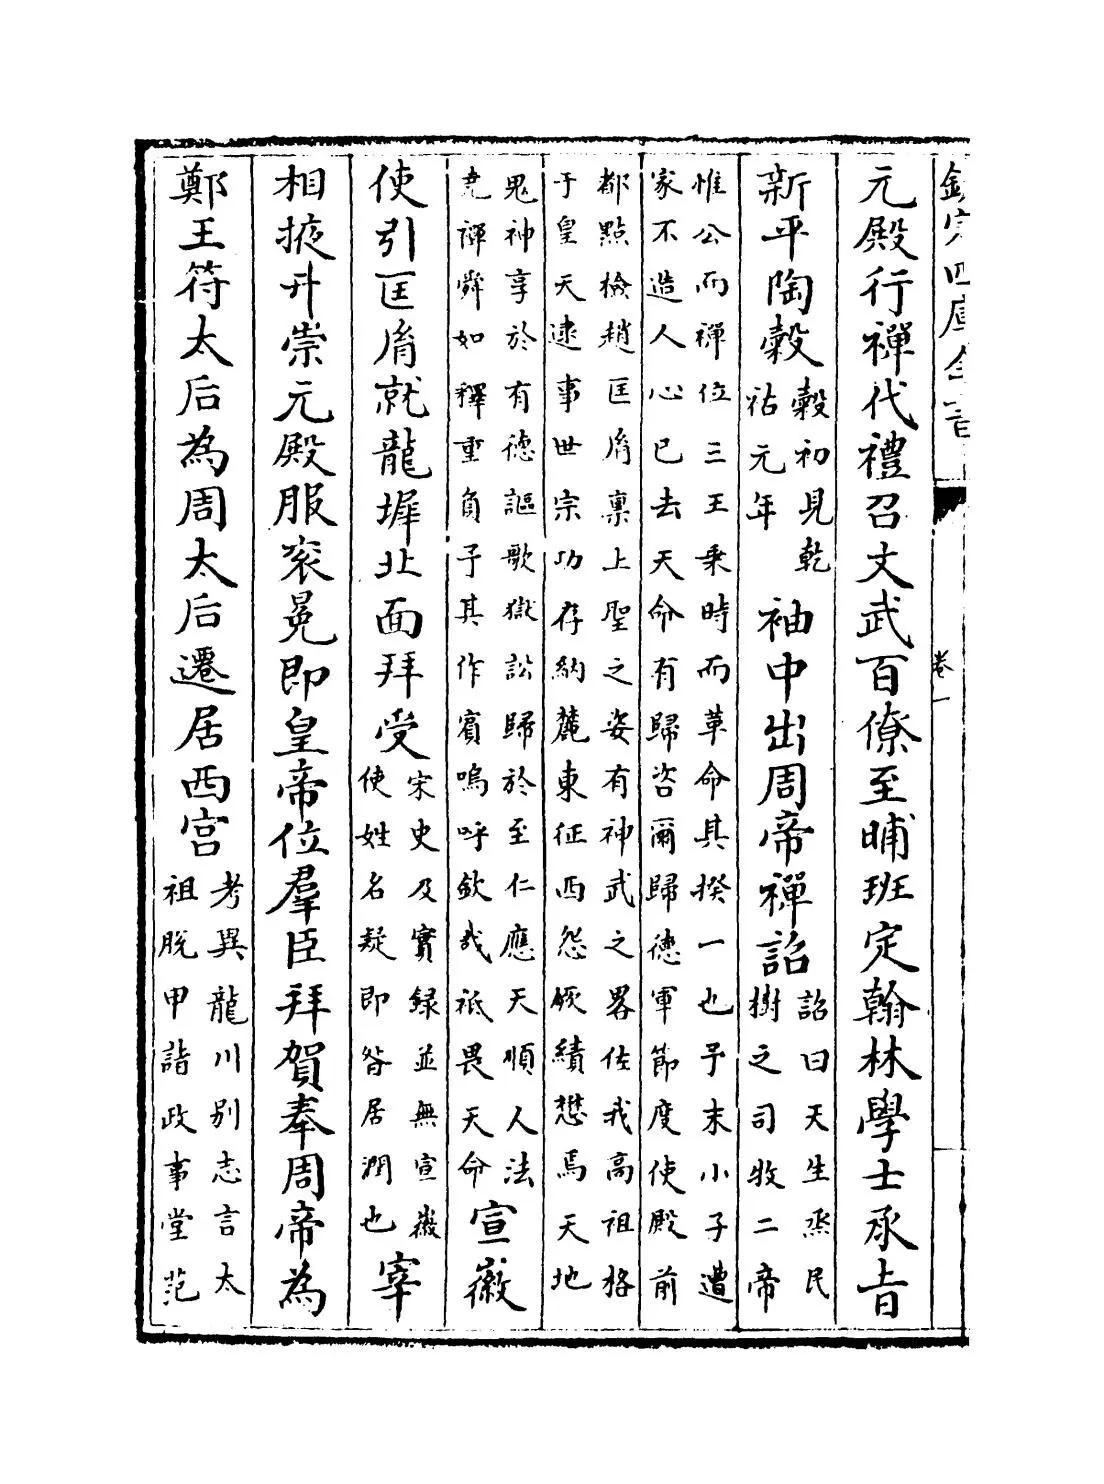 欽定四庫全書
卷一
元殿行禪代禮召文武百僚至晡班定翰林學士承㫖
新平陶穀穀初見乾祐元年袖中出周帝禪詔詔曰天生烝民樹之司牧二帝
惟公而禪位三王乗時而革命其揆一也予末小子遭
家不造人心已去天命有歸咨爾歸德軍節度使殿前
都點檢趙匡胤禀上聖之姿有神武之畧佐我高祖格
于皇天逮事世宗功存納麓東征西怨厥績懋焉天地
鬼神享於有德謳歌獄訟歸於至仁應天順人法
尭禪舜如釋重負予其作賓嗚呼欽哉祗畏天命宣徽
使引匡胤就龍墀北面拜受宋史及實録並無宣徽使姓名疑即昝居潤也宰
相掖升崇元殿服衮冕即皇帝位羣臣拜賀奉周帝為
鄭王符太后為周太后遷居西宫考異龍川别志言太祖脱甲詣政事堂范